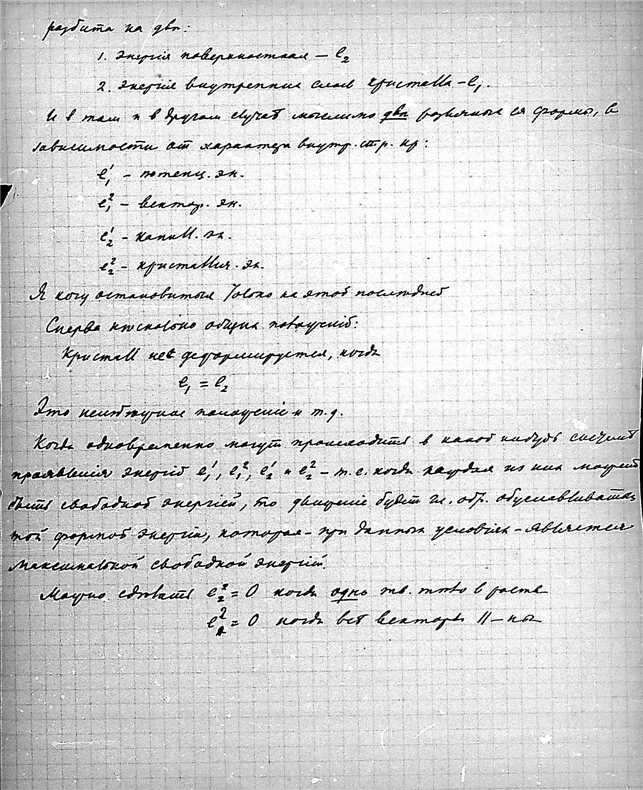 разбита на двѣ:
1. Энергія поверхностная – e₂
2. Энергія внутреннихъ слоевъ кристалла – e₁.
И в том и в другом случаѣ мыслимо двѣ различныя ея формы, в
зависимости от характера внутр. стр. кр:
e₁¹ – потенц. эн.
e₁² – вектор. эн.
e₂¹ – капилл. эн.
e₂² – кристаллич. эн.
Я хочу остановиться только на этой послѣдней
Сперва нѣсколько общихъ положеній:
Кристалл не деформируется, когда
e₁ = e₂
Это неподвижное положеніе и т.д.
Когда одновременно могут происходить в какой нибудь системѣ
проявленія энергій e₁¹, e₁², e₂¹ и e₂² – т.е. когда каждая из них может
быть свободной энергіей, то движеніе будет гл. обр. обуславливаться
той формой энергіи, которая – при данных условіях – является
максимальной свободной энергіей.
Можно сдѣлать e₂² = 0 когда одно тв. тѣло в
e₁² = 0 когда всѣ векторы || – ны